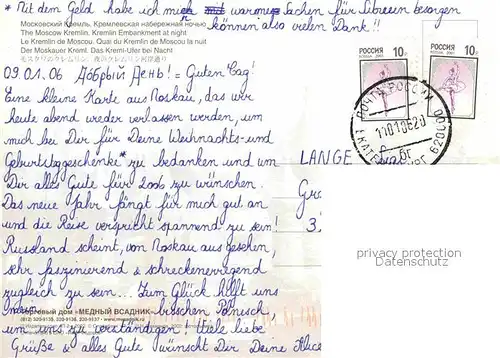 * Mit dem Geld habe ich mich mit warmen Sachen für Sibirien besorgen
können also vielen Dank!!
Московский Кремль. Кремлевская набережная ночью
The Moscow Kremlin. Kremlin Embankment at night
Le Kremlin de Moscou. Quai du Kremlin de Moscou la nuit
Der Moskauer Kreml. Das Kreml-Ufer bei Nacht
РОССИЯ
10
РОССИЯ
10
ПОЧТА РОССИИ
09.01.06 Добрый День! = Guten Tag!
Eine kleine Karte aus Moskau, das wir
heute abend wieder verlassen werden, um
mich bei Dir für Deine Weihnachts- und
Geburtstaggeschenke* zu bedanken und um
Dir alles Gute für 2006 zu wünschen.
Das neue Jahr fängt für mich gut an
und die Reise verspricht spannend zu sein!
Russland scheint, von Moskau aus gesehen,
sehr faszinierend & schreckenerregend
zugleich zu sein... Zum Glück hilft uns
mein bisschen Polnisch,
um uns zu verständigen! Viele liebe
Grüße & alles Gute wünscht Dir Deine
LANGE
privacy protection
Datenschutz
Торговый дом «МЕДНЫЙ ВСАДНИК»